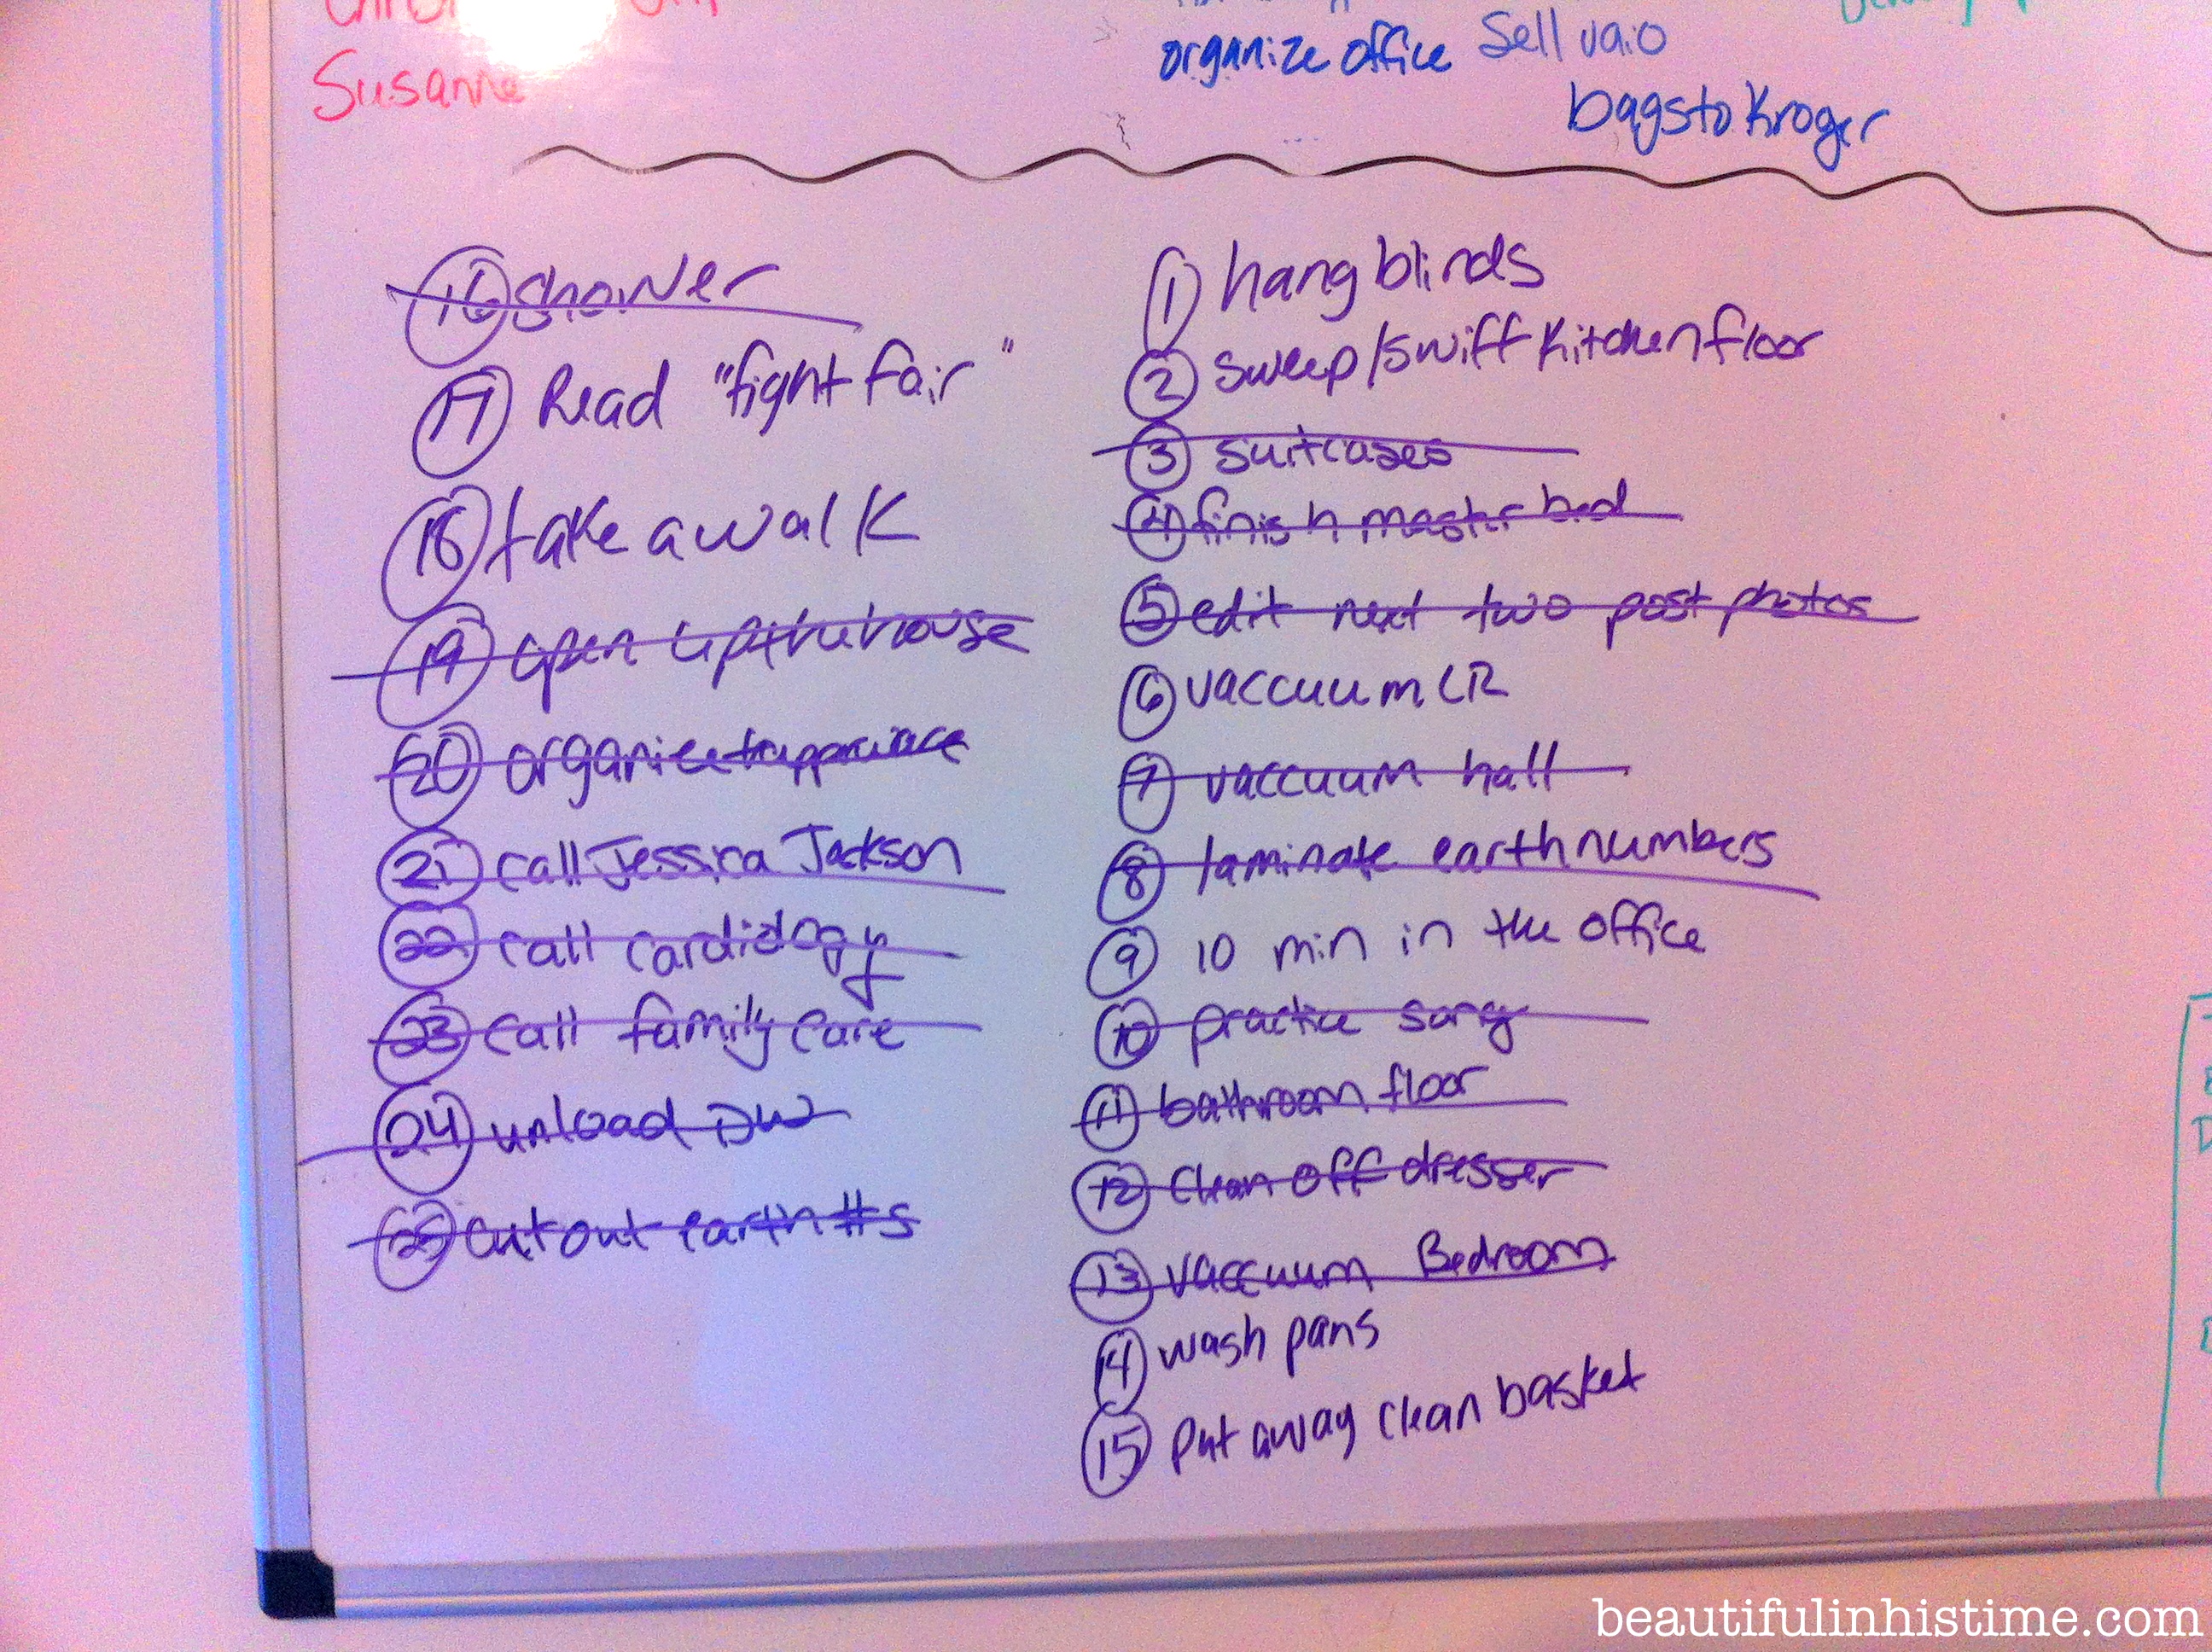 Susanne
organize office Sell vaio
bags to Kroger
16 shower
17 Read "fight fair"
18 take a walk
19 open up the house
20 organize tupperware
21 call Jessica Jackson
22 call cardiology
23 call family care
24 unload DW
25 cut out earth #s
1 hang blinds
2 sweep/swiff kitchen floor
3 suitcases
4 finish master bed
5 edit next two post photos
6 vaccuum LR
7 vaccuum hall
8 laminate earth numbers
9 10 min in the office
10 practice song
11 bathroom floor
12 clean off dresser
13 vaccuum Bedroom
14 wash pans
15 put away clean basket
beautifulinhistime.com